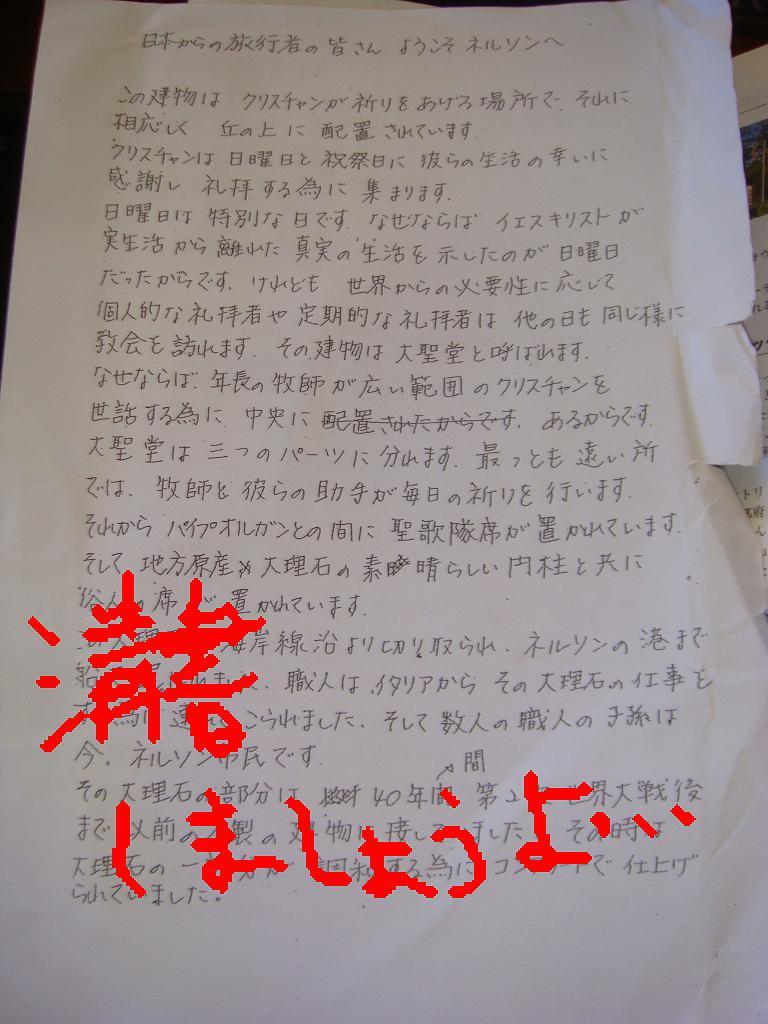 日本からの旅行者の皆さん ようこそ ネルソンへ
この建物は クリスチャンが祈りをあげる場所で、それに
相応しく 丘の上に 配置されています。
クリスチャンは 日曜日と 祝祭日に 彼らの生活の幸いに
感謝し 礼拝する為に 集まります。
日曜日は 特別な日です。なぜならば イエスキリストが
実生活から離れた 真実の生活を示したのが 日曜日
だったからです。けれども 世界からの必要性に応じて
個人的な礼拝者や 定期的な礼拝者は 他の日も同じ様に
教会を訪れます。その建物は 大聖堂と呼ばれます。
なぜならば、年長の牧師が広い範囲のクリスチャンを
世話する為に 中央に 配置されたからです。あるからです。
大聖堂は 三つのパーツに分れます。最っとも遠い所
では、牧師と彼らの助手が毎日の祈りを行います。
それから パイプオルガンとの間に 聖歌隊席が置かれています。
そして 地方原産 大理石の素 晴らしい 円柱と共に
俗人の席が置かれています。
この大理 海岸線沿より切り取られ、ネルソンの港まで
船 ました、職人は イタリアから その大理石の仕事を
為に 連 こられました、そして 数人の職人の子孫は
今、ネルソン市民です。
間
その大理石の部分は 40年間 第2 世界大戦後
まで 以前の 製の建物に接して ました その時は
大理石の一部分が 調和する為に コンクリートで仕上げ
られていました。
清書
しましょうよ…